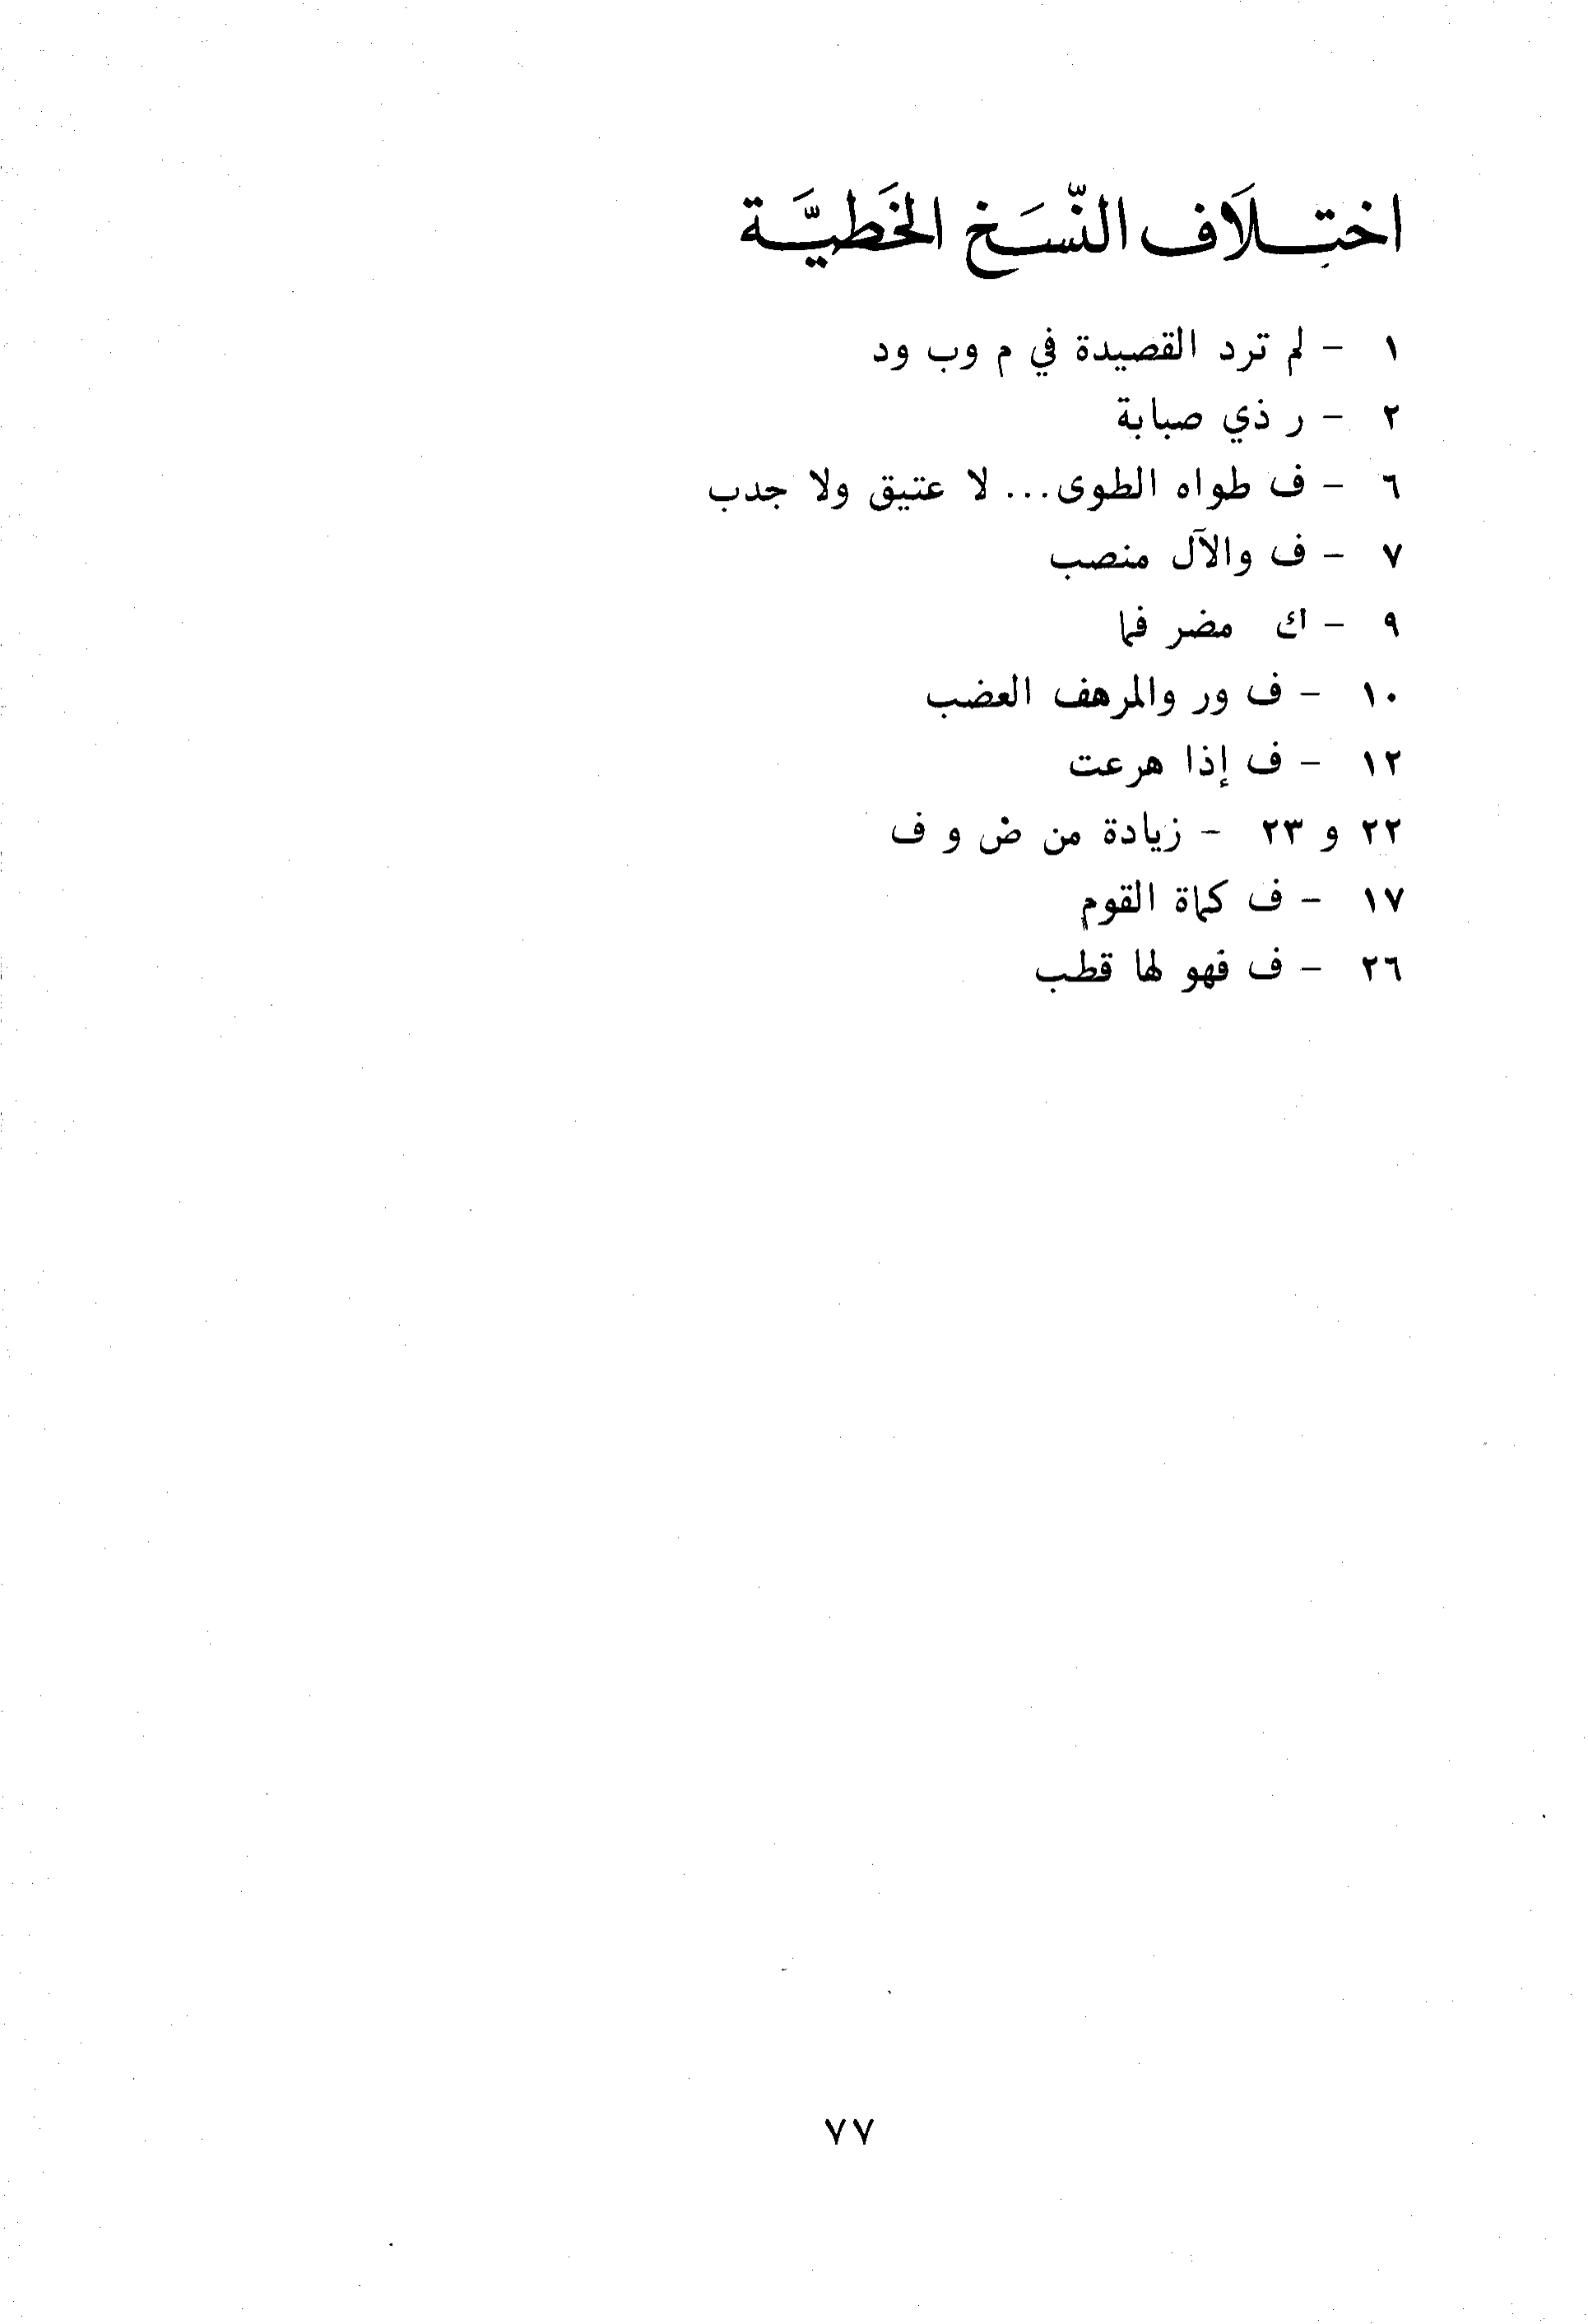 اختلَاف النّسَخ الخَطيَّة
١ - لم ترد القصيدة في م وب ود
٢ - ر ذي صبابة
٦ - ف طواه الطوى... لا عتيق ولا جدب
٧ - ف والآل منصب
٩ - ك مضر فما
١٠ - ف ور والمرهف العضب
١٢ - ف إذا هرعت
٢٢ و ٢٣ - زيادة من ض و ف
١٧ - ف كماة القوم
٢٦ - ف فهو لها قطب
٧٧